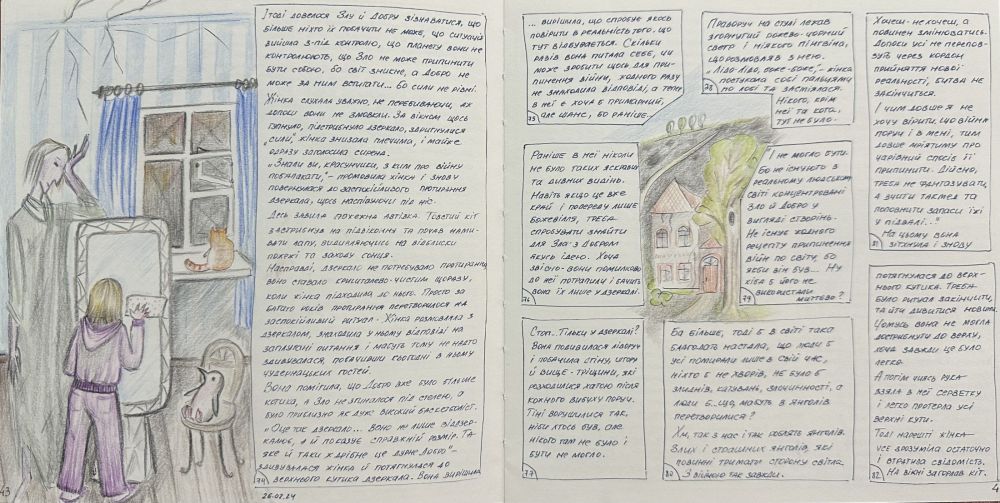 І тоді довелося Злу й Добру зізнаватися, що
більше ніхто їх побачити не може, що ситуація
вийшла з-під контролю, що планету вони не
контролюють, що Зло не може припинити
бути собою, бо світ зникне, а Добро не
може за ним встигати... Бо сили не рівні.
Жінка слухала уважно, не перебиваючи, аж
допоки вони не змовкли. За вікном щось
гупнуло, підстрибнуло дзеркало, здригнулися
„сили", жінка знизала плечима, і майже
одразу заголосила сирена.
„Знали ви, красунчики, з ким про війну
побалакати," – промовила жінка і знову
повернулася до заспокійливого протирання
дзеркала, щось наспівуючи під ніс.
Десь завила пожежна автівка. Товстий кіт
застрибнув на підвіконну та почав нами-
вати лапу, видивляючись на відблиски
пожежі та заходу сонця.
Насправді, дзеркало не потребувало протирання,
воно ставало кришталево-чистим щоразу,
коли жінка підходила до нього. Просто за
багато років протирання перетворилося на
заспокійливий ритуал. Жінка розмовляла з
дзеркалом, знаходила у ньому відповіді на
заплутані питання і мабуть тому не надто
здивувалася, побачивши сьогодні в ньому
чудернацьких гостей.
Вона помітила, що Добро вже було більше
котика, а Зло не згиналося під стелею, а
було приблизно як дуже високий баскетболіст.
„Оце так дзеркало... Воно не лише віддзер-
калює, а й показує справжній розмір. Та
яке й таки хдрібне це дурне Добро"–
здивувалася жінка й потягнулася до
верхнього кутика дзеркала. Вона вирішила
74
26.07.24
43
... вирішила, що спробує якось
повірити в реальність того, що
тут відбувається. Скільки
разів вона питала себе, чи
може зробити щось для при-
пинення війни, жодного разу
не знаходила відповіді, а тепер
в неї є хоча б примарний,
але шанс, бо раніше...
75
Раніше в неї ніколи
не було таких яскравих
та дивних видінь.
Навіть якщо це вже
край і попереду лише
божевілля, треба
спробувати знайти
для Зла з Добром
якусь ідею. Хоча
звісно – вони помилково
до неї потрапили і бачить
вона їх лише у дзеркалі.
76
Стоп. Тільки у дзеркалі?
Вона подивилася ліворуч
і побачила стіну, угору
й вище – тріщини, які
розходилися хатою після
кожного вибуху поруч.
Тіні ворушилися так,
ніби хтось був, але
нікого там не було і
бути не могло.
77
Праворуч на стулі лежав
згорнутий рожево-чорний
светр і ніякого пінгвіна,
що розмовляв з нею.
„Лідо-Лідо, боже-боже," – жінка
постукала собі пальцями
по лобі та засміялася.
Нікого, крім
неї та кота,
тут не було.
78
І не могло бути.
Бо не існують в
реальному людському
світі концентровані
Зло й Добро у
вигляді створінь.
Не існує жодного
рецепту припинення
війн по світу, бо
якби він був... Ну
хіба б його не
використали
миттєво?
79
Ба більше, тоді б в світі така
благодать настала, що люди б
усі помирали лише в свій час,
ніхто б не хворів, не було б
злиднів, катувань, злочинності, а
люди б... що, мабуть в янголів
перетворилися?
Хм, так з нас і так роблять янголів.
Злих і страшних янголів, які
повинні тримати сторону світла.
З війною так завжди.
80
Хочеш-не хочеш, а
повинен змінюватись.
Допоки усі не перепов-
зуть через кордон
прийняття нової
реальності, битва не
закінчиться.
І чим довше я не
хочу вірити, що війна
поруч і в мені, тим
довше мріятиму про
чарівний спосіб її
припинити. Дійсно,
треба не фантазувати,
а вчити такмед та
поповнити запаси їжі
у підвалі..."
На цьому вона
зітхнула і знову
81
потягнулася до верх-
нього кутика. Треба
було ритуал закінчити,
та йти дивитися новини.
Чомусь вона не могла
дострибнути до верху,
хоча завжди це було
легко.
А потім чиясь рука
взяла в неї серветку
і легко протерла усі
верхні кути.
Тоді нарешті жінка
усе зрозуміла остаточно
і втратила свідомість.
На вікні загорлав кіт.
82
4